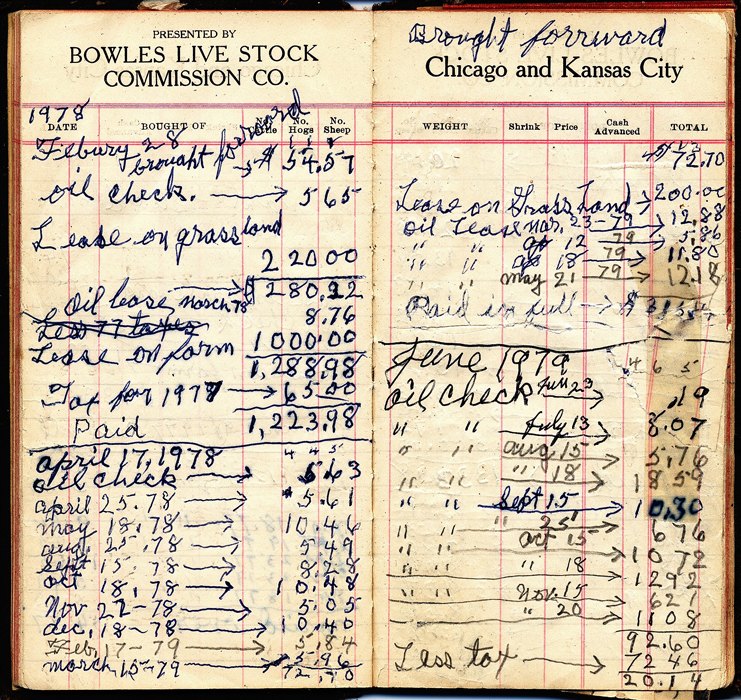 PRESENTED BY
BOWLES LIVE STOCK
COMMISSION CO.
1978
DATE BOUGHT OF No. Cattle No. Hogs No. Sheep
Febury 28
brought forword → $ 54.57
oil check. → 5 65
Lease on grassland
2 20 00
$ 280.22
oil lease march 78 8.76
Less 77 taxes
Lease on form 1000.00
1,288.98
Tax for 1978 → 65.00
Paid 1,223.98
april 17, 1978 4 4 5
oil check → 5 6 3
april 25.78 → 5.61
may 18.78 → 10 46
aug. 25.78 → 5 49
Sept 15.78 → 8 28
oct 18.78 → 10.48
Nov 22-78 → 5 05
dec, 18-78 → 10.40
Feb. 17-79 → 5.84
march 15-79 → 5.96
72,70
Brought forrward
Chicago and Kansas City
WEIGHT Shrink Price Cash Advanced TOTAL
72.70
Lease on Grass Land → 200.00
oil lease mar. 23-79 → 12.88
" " ap 12 79 → 5.86
" " ap 18 79 → 11.80
" " may 21 79 → 12.18
Paid in full → $
June 1979 4 6 5
oil check 23 → .19
" " July 13 → 8.07
" " aug 15 → 5.76
" " " 18 → 18 59
" " Sept 15 → 10,30
" " " 25 → 6 76
" " oct 15 → 10 72
" " " 18 → 12 92
" " Nov. 15 → 6 21
" " " 20 → 11 08
92.60
Less tax → 72 46
20.14